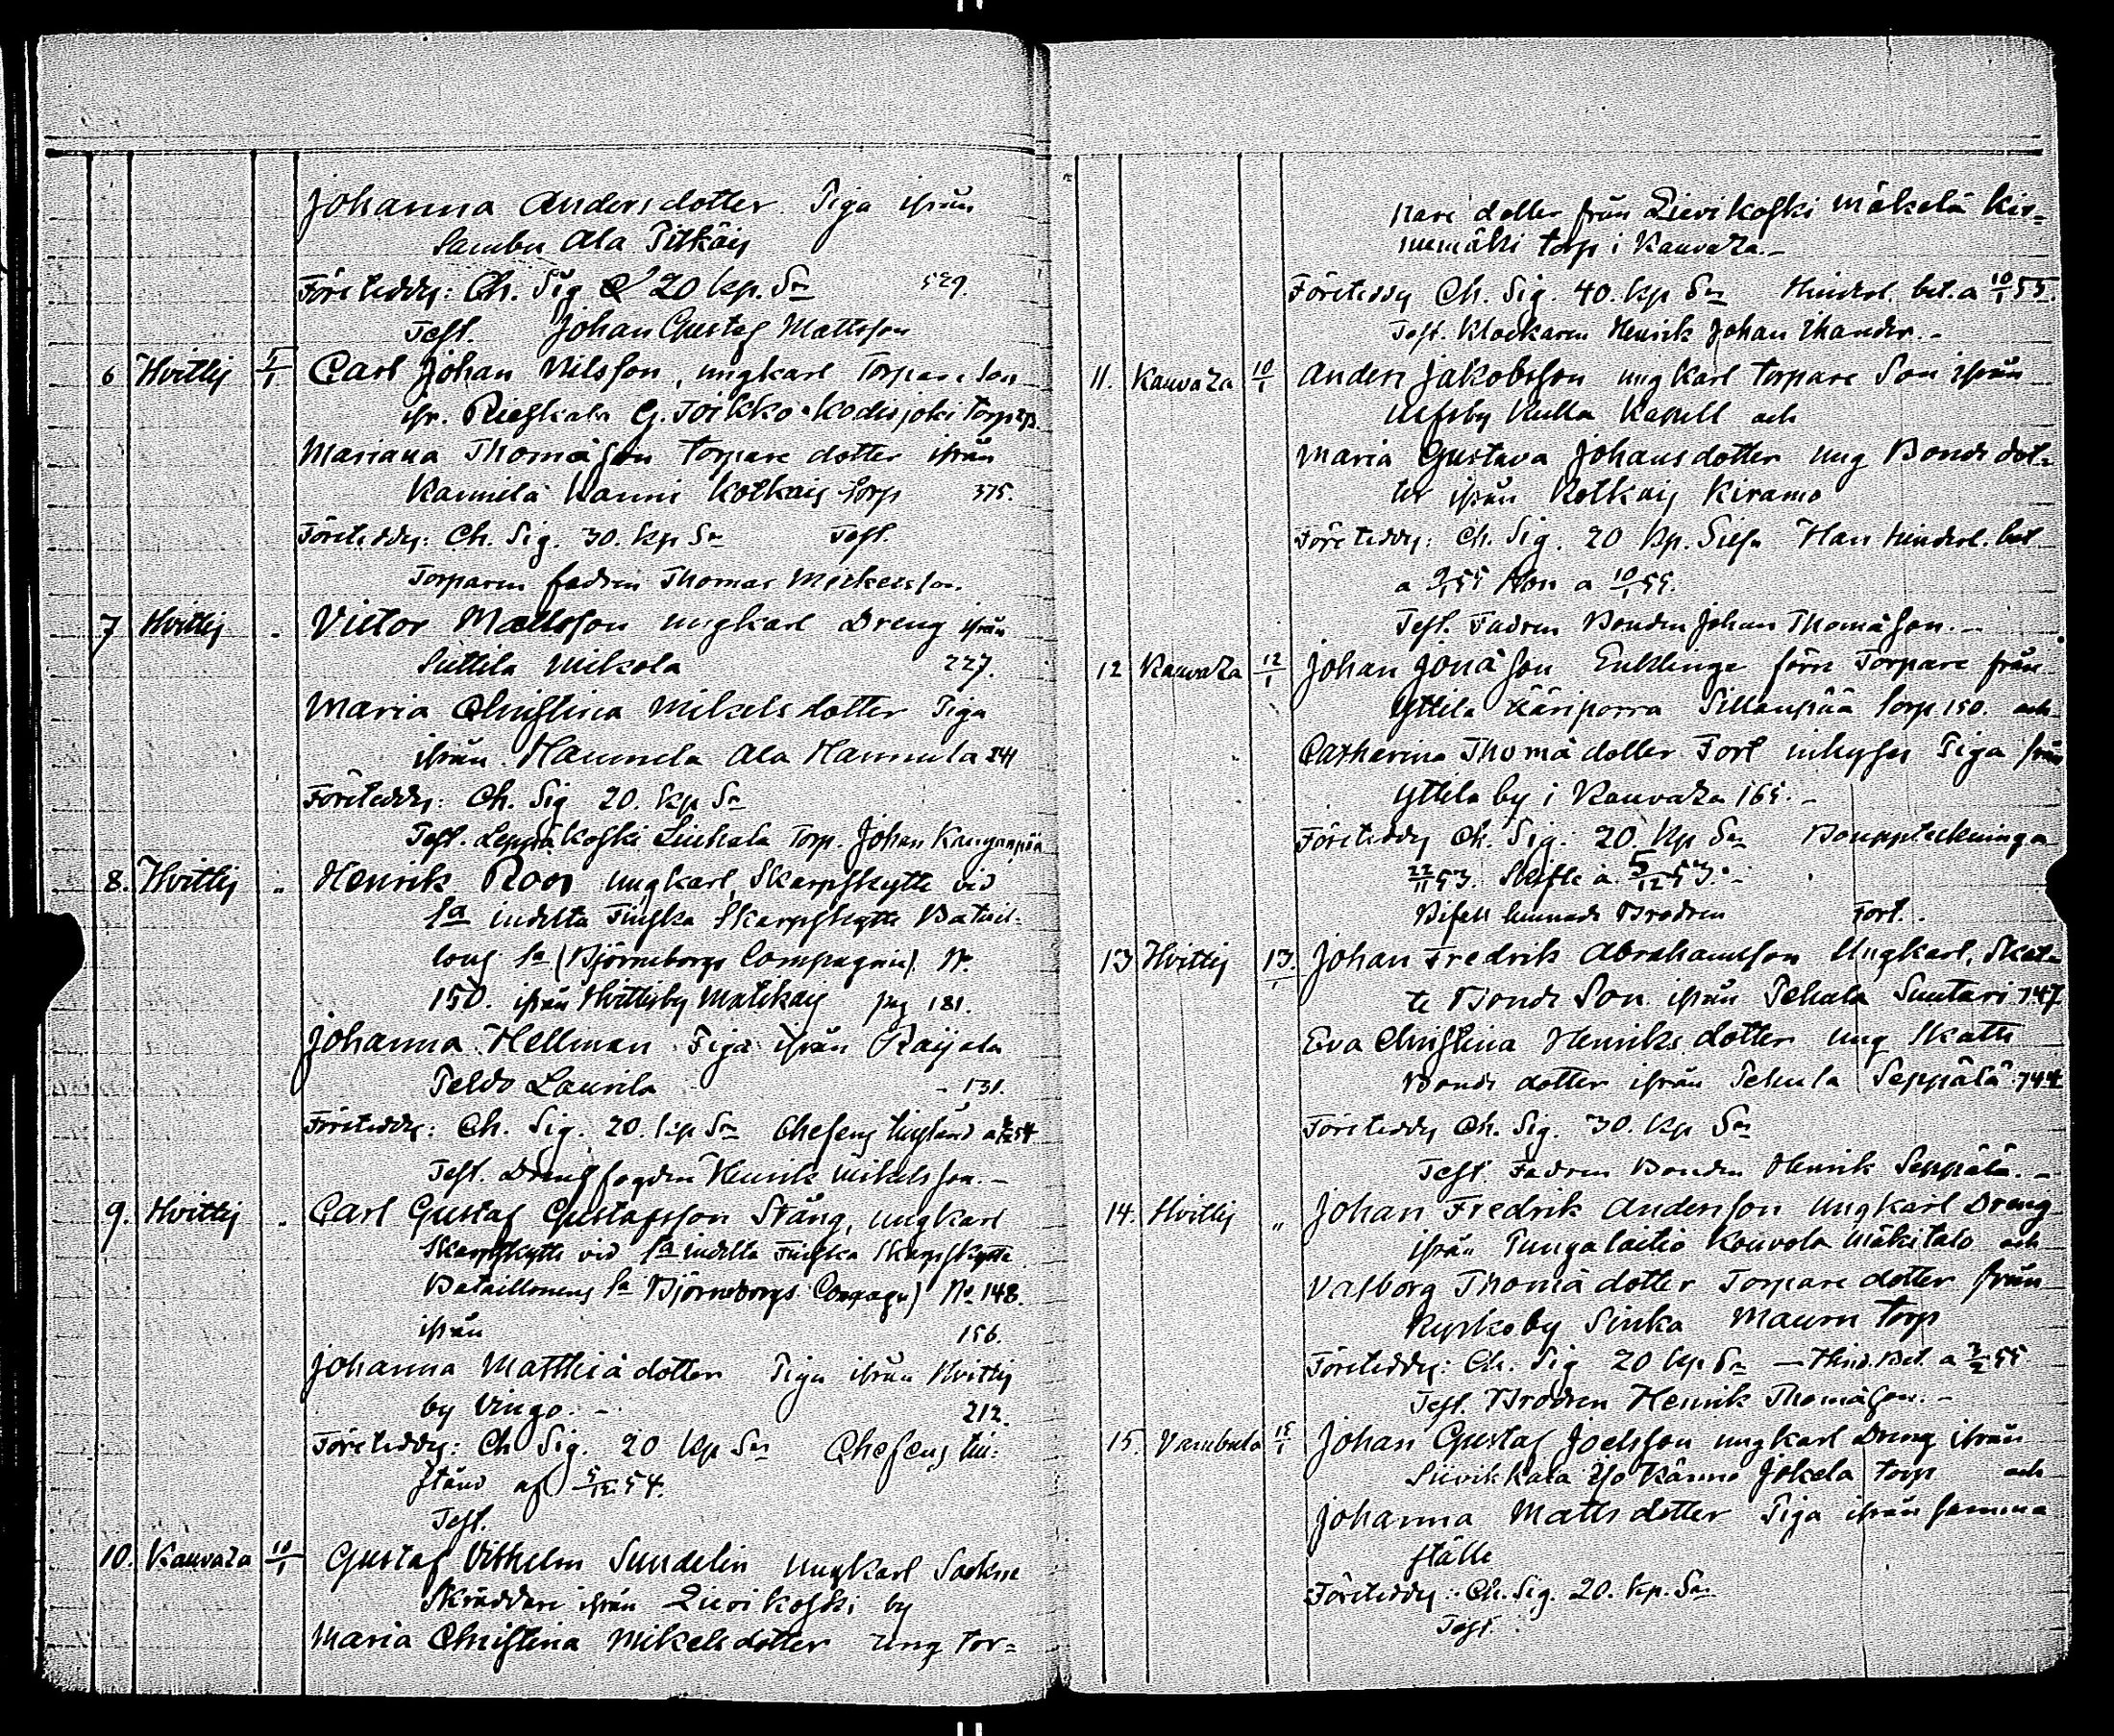 Johanna Andersdotter. Piga ifrån
Sambu Ala Pitkäis
Företeddes: Ch. Sig. 20 kp. Sr 529.
Test. Johan Gustaf Mattsson
6 Hvittis 5/1 Carl Johan Nilsson, ungkarl Torpare Son
ifr. Rieskala G. Toikko Kodisjoki torp
Mariana Thomæ Torpare dotter ifrån
Karmela Hanni Kotkais torp 375.
Företeddes: Ch. Sig. 30. kp Sr Test.
Torparen fadren Thomas Mickelsson.
7 Hvittis " Victor Mattsson ungkarl Dreng ifrån
Suttila Mikola 227.
Maria Christina Mikelsdotter Piga
ifrån Hannula Ala Hannula 241
Företeddes: Ch. Sig 20. kp Sr
Test. Leppäkoski Liukala Torp. Johan Kanganpää
8. Hvittis " Henrik Roos ungkarl, Skarpskytte vid
1a indelta Finska Skarpskytte Batail-
long 1a (Björneborgs Compagnie) No
150. ifrån Hvittisby Matikais pag 181.
Johanna Hellman Piga ifrån Raijala
Peldo Laurila - 131.
Företeddes: Ch. Sig. 20. kp Sr Chefens tillstånd a 54
Test. Drengfogden Henrik Mikelsson. -
9. Hvittis " Carl Gustaf Gustafsson Stång, ungkarl
Skarpskytte vid 1a indelta Finska Skarpskytte
Bataillonens 1a Björneborgs Compagn) No 148.
ifrån 156.
Johanna Matthiædotter Piga ifrån Hvittis
by Vingo. - 212.
Företeddes: Ch Sig. 20 kp Sr Chefens till-
stånd af 5/12 54.
Test.
10. Kauvaza 10/1 Gustaf Vilhelm Sundelin ungkarl Sockne
Skräddare ifrån Lievikoski by
Maria Christina Mikelsdotter ung tor-
pare dotter från Lievikoski Mäkelä Kir-
numäki torp i Kauvaza. -
Företeddes Ch. Sig. 40. kp Sr Hinderl. bet. a 10/1 55.
Test. Klockaren Henrik Johan Thander. -
11. Kauvaza 10/1 Anders Jakobsson ungkarl torpare Son ifrån
Ulfsby Kulla Kapell och
Maria Gustava Johansdotter ung Bonde dot-
ter ifrån Kotkais Kiramo
Företeddes: Ch. Sig. 20 Kp. Silfr Han hinderl. bet
a 9/1 55 Hon a 10/1 55.
Test. Fadren Bonden Johan Thomæson. -
12 Kauvaza 12/1 Johan Jonæson Enklinge förre Torpare från
Yttilä Kääriporra Sillanpää torp 150. och
Catharina Thomædotter Fort inhyses Piga från
Yttilä by i Kauvaza 165. -
Företeddes Ch. Sig. 20. kp Sr Bouppteckning a
22/11 53. Skifte a. 5/12 53. -
Bifall lemnade Brodren Fort. -
13 Hvittis 13/1 Johan Fredrik Abrahamsson Ungkarl, Skat-
te Bonde Son ifrån Pehula Suntari 747
Eva Christina Henriksdotter ung Skatte
Bonde dotter ifrån Pehula Seppälä 744
Företeddes Ch. Sig. 30. kp Sr
Test. Fadren Bonden Henrik Seppälä. -
14. Hvittis " Johan Fredrik Andersson Ungkarl Dreng
ifrån Pungalaitio Kouvola Mäkitalo och
Valborg Thomædotter Torpare dotter från
Kyrkoby Sinka Maurn torp
Företeddes: Ch. Sig 20 kp Sr - Hind. Bet. a 3/2 55
Test. Brodren Henrik Thomæson. -
15. Vambula 15/1 Johan Gustaf Joelsson ungkarl Dreng ifrån
Siivikkala Iso Kännö Jokela torp och
Johanna Mattsdotter Piga ifrån samma
ställe
Företeddes: Ch. Sig. 20. kp. Sr
Test.